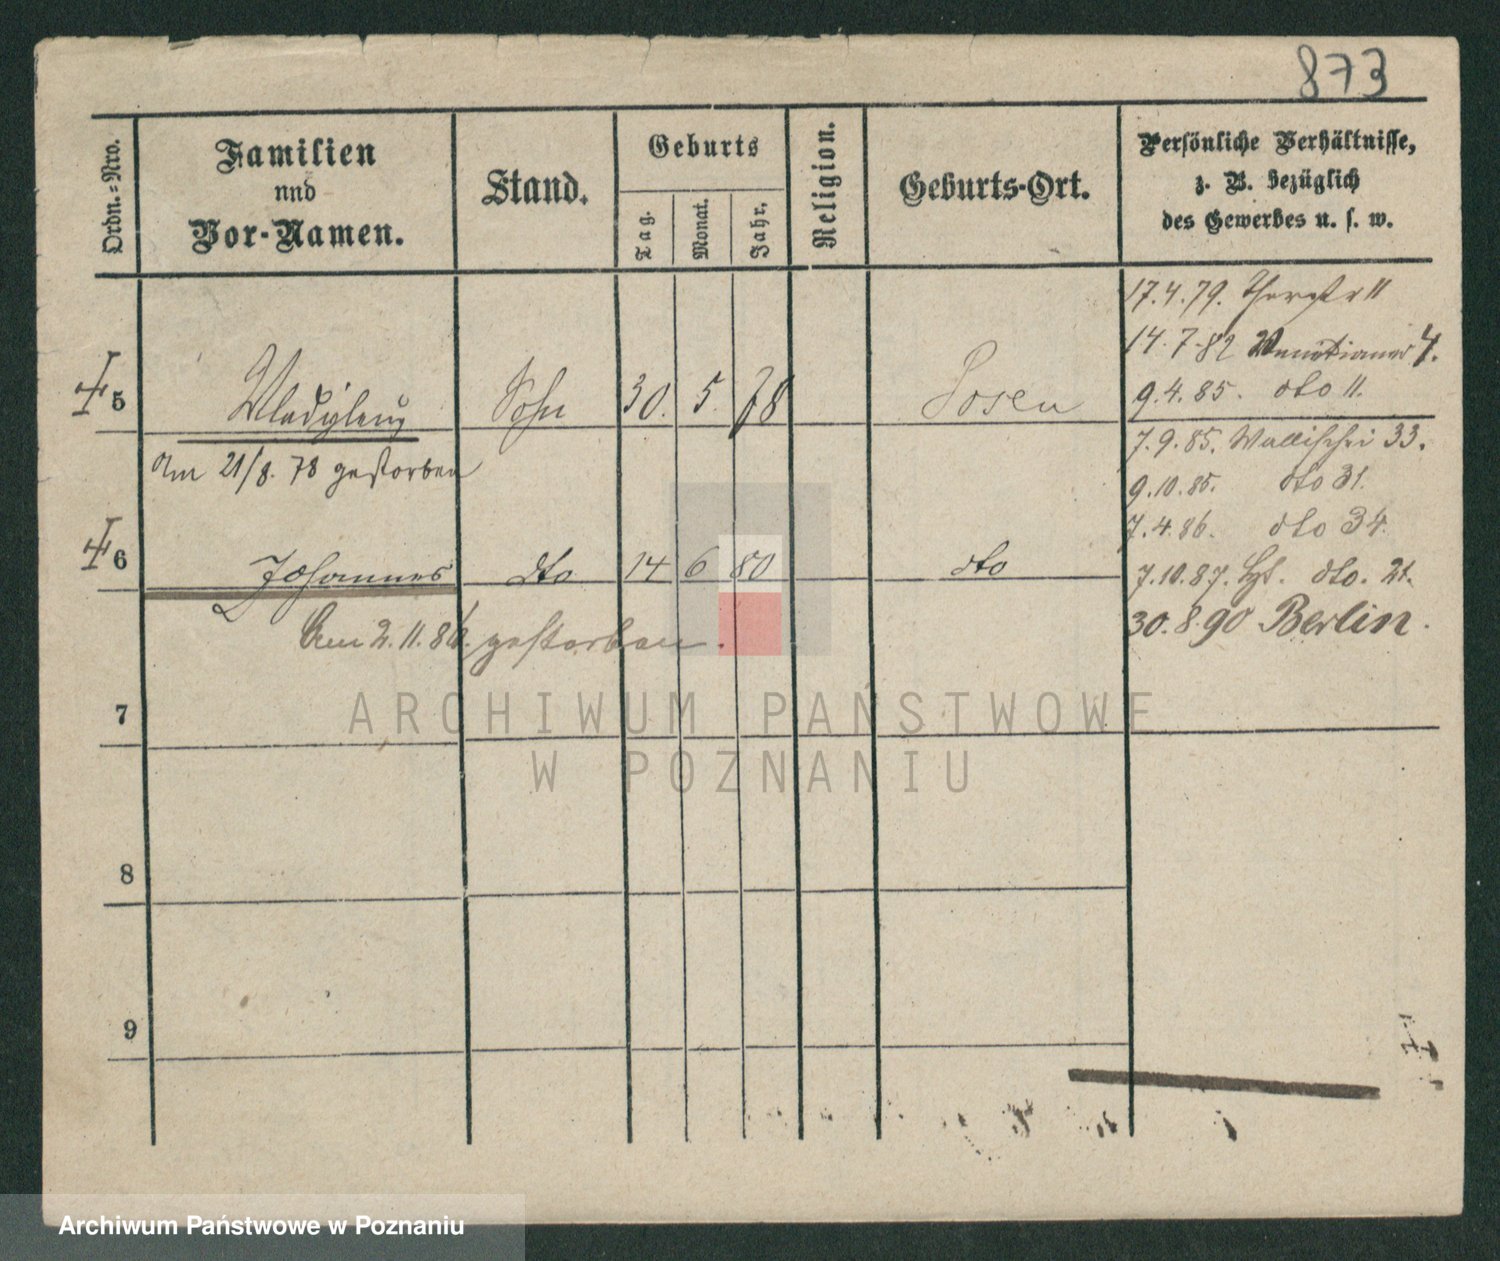 873
Ordn.=Nro.
Familien
und
Vor-Namen.
Stand.
Geburts
Tag.
Monat.
Jahr.
Religion.
Geburts-Ort.
Persönliche Verhältnisse,
z. B. bezüglich
des Gewerbes u. s. w.
17.4.79. 11
14.7.82 Venetianer 4.
9.4.85. dto 11.
5 Wladislaus Sohn 30. 5. 78 Posen
am 21/8. 78 gestorben
7.9.85. Wallischei 33.
9.10.85. dto 31.
7.4.86. dto 34.
6 Johannes dto 14 6 80 dto
7.10.87. dto. 21.
30.8.90 Berlin.
Am 2.11.86. gestorben.
7
8
9
ARCHIWUM PAŃSTWOWE
W POZNANIU
Archiwum Państwowe w Poznaniu